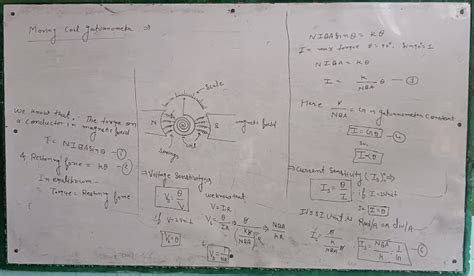 Moving Coil galvanometer ⇒
Scale
N
S
magnetic field
coil
we know that: The torque on
a conductor in magnetic field
T = NIBA Sinθ - ①
& Restoring force = kθ - ②
In equilibrium -
Torque = Restoring force
⇒ Voltage Sensitivity
we know that
V = IR
NIBA Sinθ = kθ
In max torque θ = 90° Sin90° = 1
NIBA = kθ
I = k/NBA θ - ③
Here k/NBA = G → Galvanometer Constant
I = Gθ - ④
so,
I ∝ θ
⇒ Current Sensitivity (Is) ⇒
Is = θ/I
if I = 1 unit
Is = θ
It's SI Unit is Rad/A or div/A